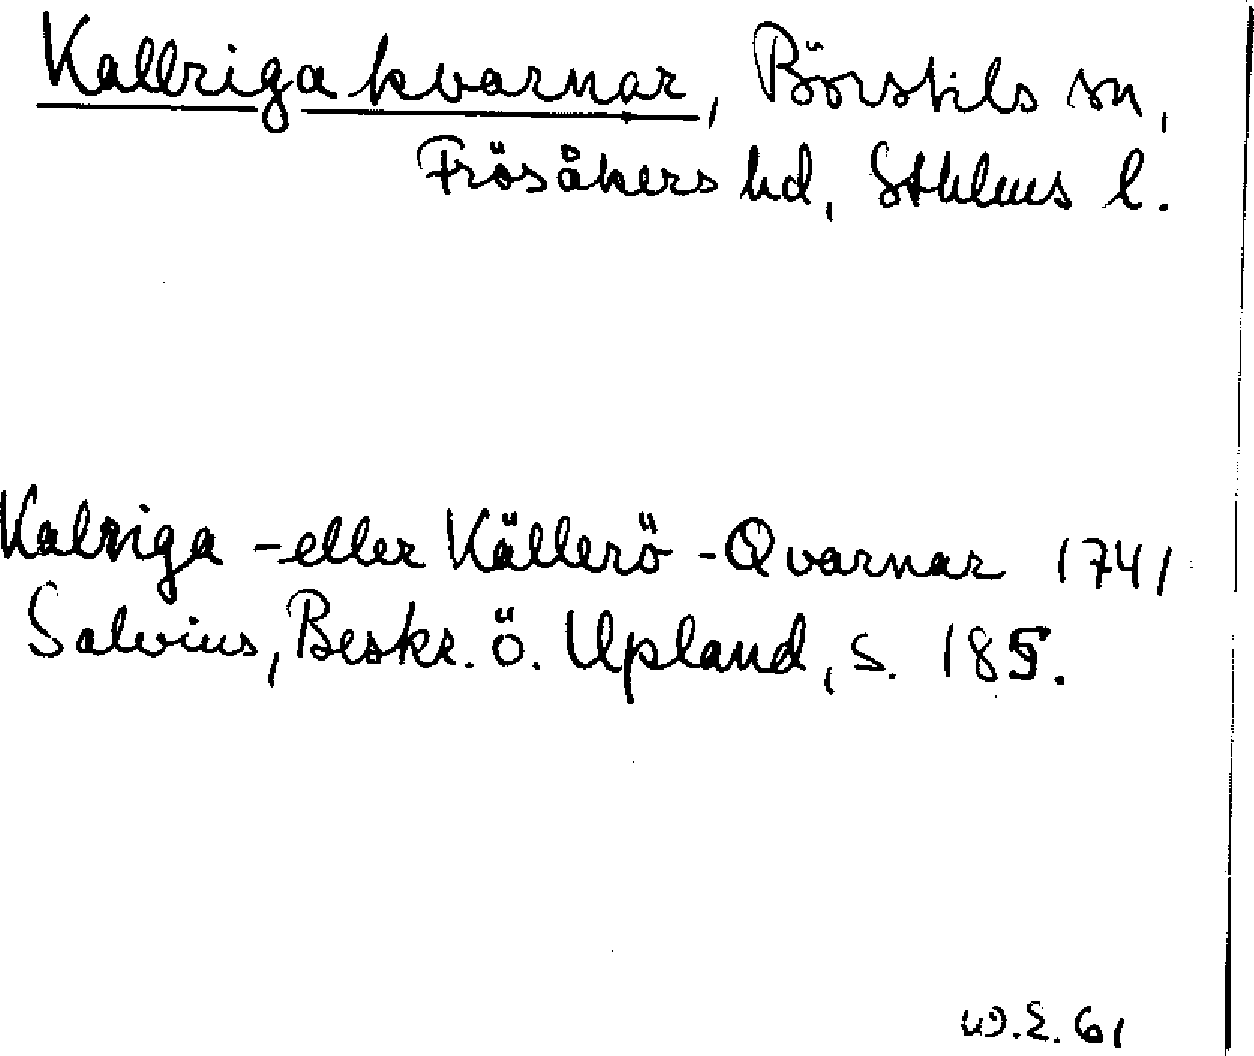 Kallriga kvarnar, Börstils sn,
Frösåkers hd, Sthlms l.
Kalriga - eller Källerö - Qvarnar 1741
Salvius, Beskr. ö. Upland, s. 185.
W.E. 61